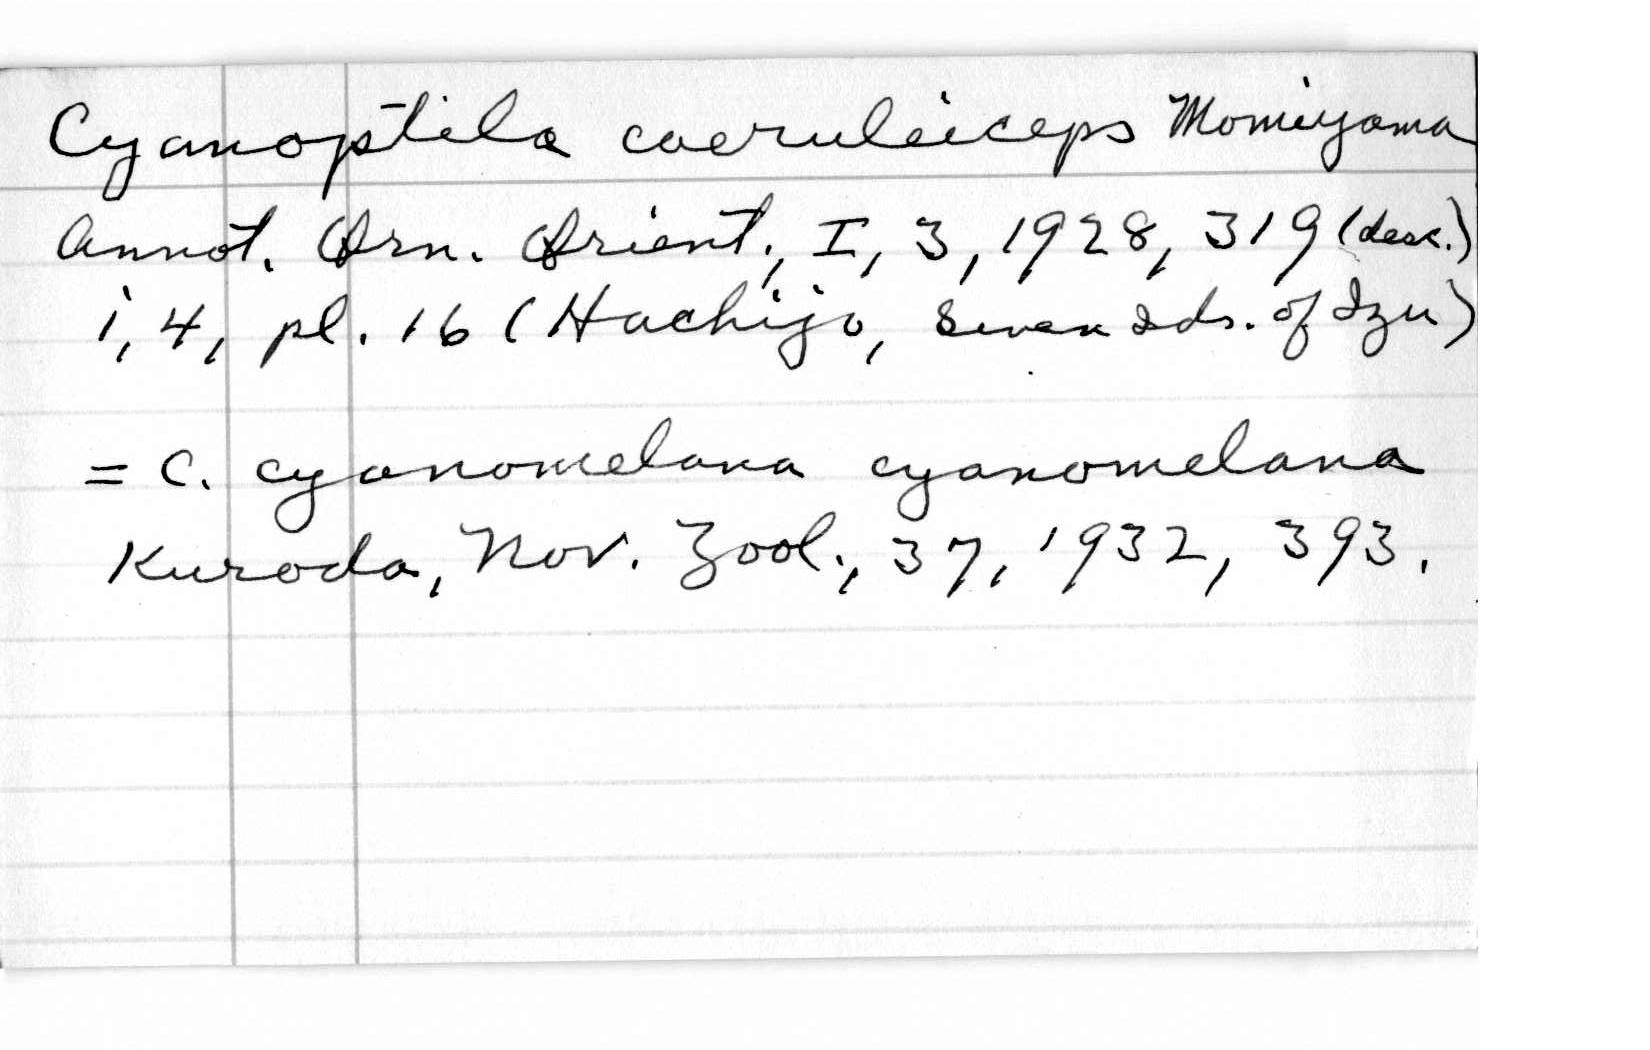 Cyanoptila caeruleiceps Momiyama
Annot. Orn. Orient., I, 3, 1928, 319 (desc.)
i, 4, pl. 16 (Hachijo, Seven Ids. of Izu)
= C. cyanomelana cyanomelana
Kuroda, Nov. Zool., 37, 1932, 393.